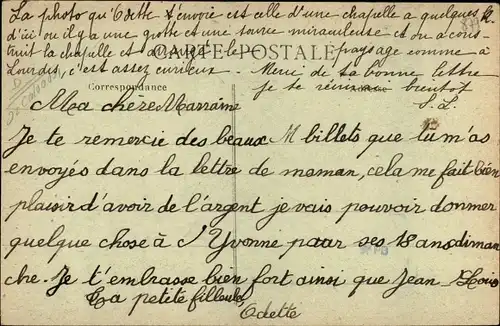 La photo qu'Odette t'envoie est celle d'une chapelle a quelques
d'ici ou il y a une grotte et une source miraculeuse et on a cons-
truit la chapelle et le paysage comme à
CARTE POSTALE
Lourdes, c'est assez curieux. Merci de ta bonne lettre
je te bientot
S. L.
Correspondance
Ma chère Marraine
Je te remercie des beaux billets que tu m'as
envoyés dans la lettre de maman, cela me fait bien
plaisir d'avoir de l'argent je vais pouvoir donner
quelque chose à l'Yvonne paar ses 18 ans diman
che. Je t'embrasse bien fort ainsi que Jean-
Ta petite filleule,
Odette